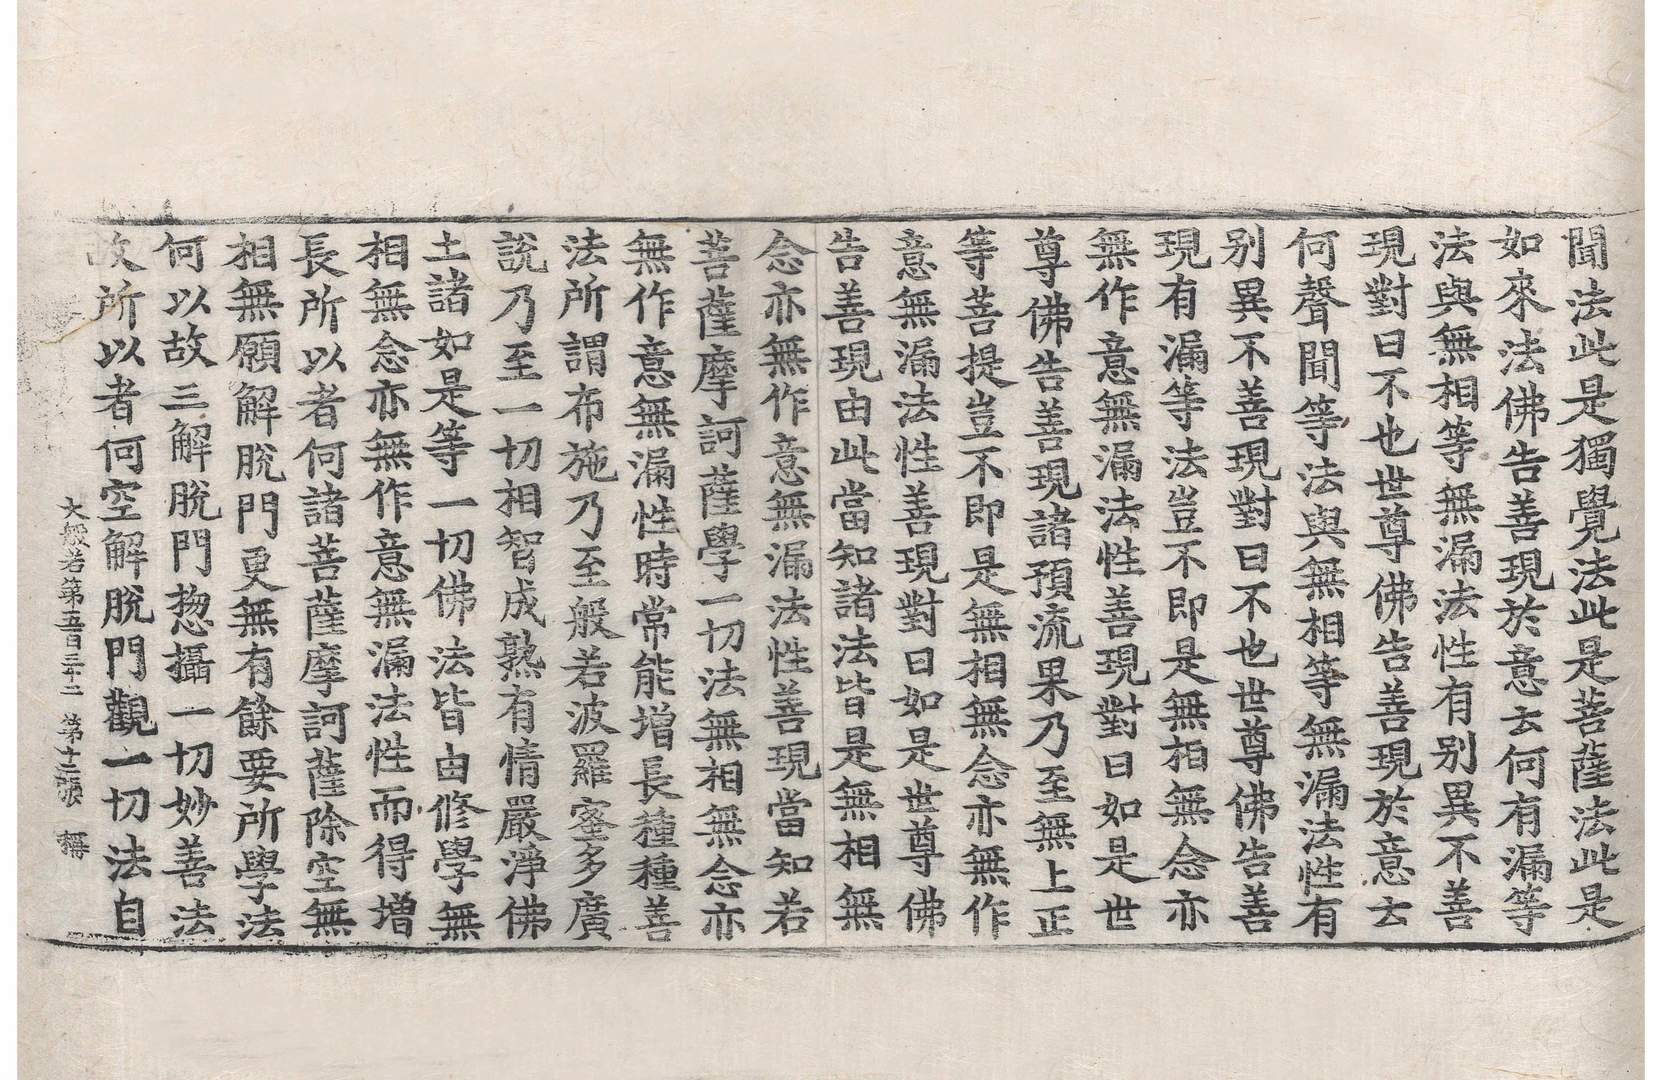 聞法此是獨覺法此是菩薩法此是
如來法佛告善現於意云何有漏等
法與無相等無漏法性有別異不善
現對曰不也世尊佛告善現於意云
何聲聞等法與無相等無漏法性有
別異不善現對曰不也世尊佛告善
現有漏等法豈不即是無相無念亦
無作意無漏法性善現對曰如是世
尊佛告善現諸預流果乃至無上正
等菩提豈不即是無相無念亦無作
意無漏法性善現對曰如是世尊佛
告善現由此當知諸法皆是無相無
念亦無作意無漏法性善現當知若
菩薩摩訶薩學一切法無相無念亦
無作意無漏性時常能增長種種善
法所謂布施乃至般若波羅蜜多廣
說乃至一切相智成熟有情嚴淨佛
土諸如是等一切佛法皆由修學無
相無念亦無作意無漏法性而得增
長所以者何諸菩薩摩訶薩除空無
相無願解脫門更無有餘要所學法
何以故三解脫門惣攝一切妙善法
故所以者何空解脫門觀一切法自
大般若第五百三十二 第十二張 稱